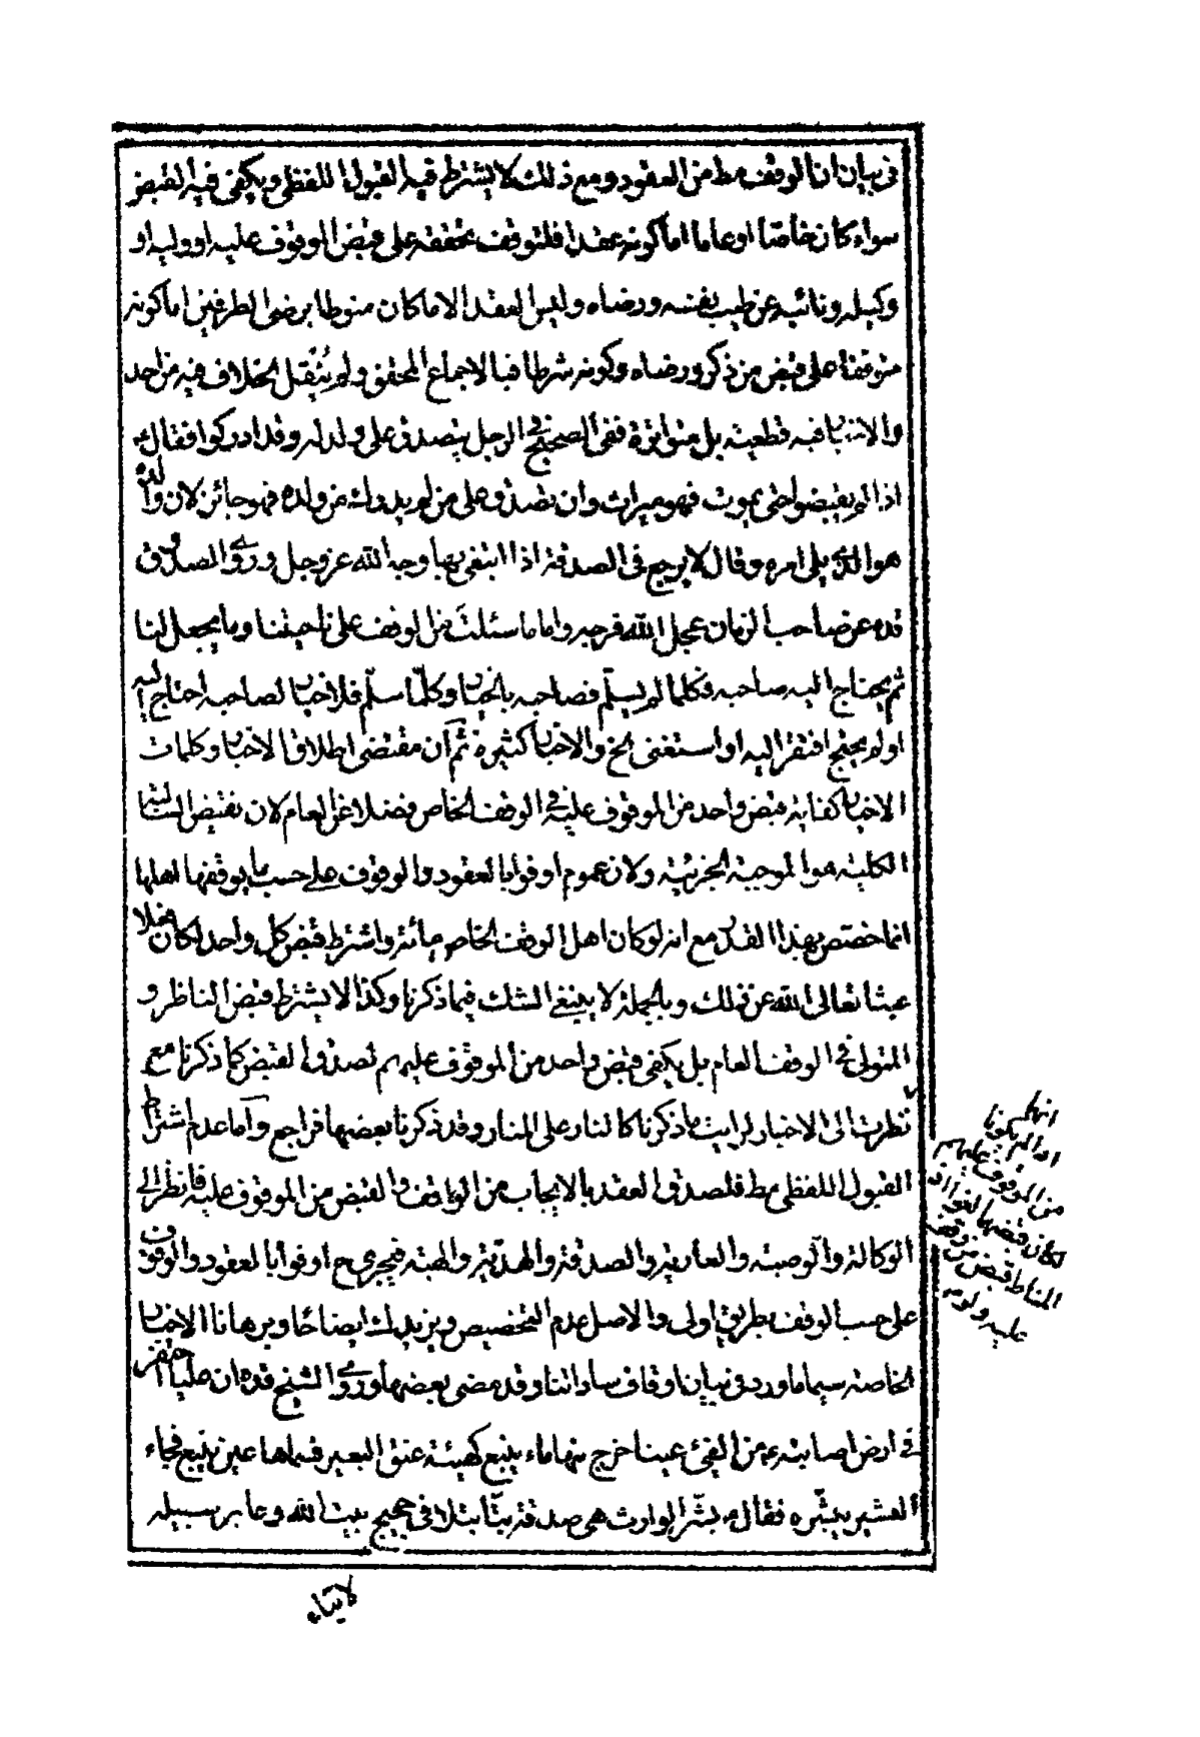 فی بیان ان الوقف مط من العقود و مع ذلک لا یشترط فیه القبول اللفظی و یکفی فیه القبض
سواء کان خاصّا او عاما اما کونه عقدا فلتوقف تحققه علی قبض الموقوف علیه او ولیه او
وکیله و نائبه عن طیب نفسه و رضاه و لیس العقد الا ما کان منوطا برضی الطرفین اما کونه
متوقفا علی قبض من ذکر و رضاه و کونه شرطا فبالاجماع المحقق و لم یُنقل الخلاف فیه من احد
والاخبار فیه قطعیة بل متواترة ففی الصحیح فی الرجل یتصدق علی ولد له و قد ادرکوا فقال
اذا لم یقبضوا حتی یموت فهو میراث وان تصدق علی من لم یدرک من ولده فهو جائز لان والده
هو الذی یلی امره وقال لا یرجع فی الصدقة اذا ابتغی بها وجه الله عز وجل وروی الصدوق
قده عن صاحب الزمان عجل الله فرجه و اما ما سئلتَ من الوقف علی ناحیتنا و ما یجعل لنا
ثم یحتاج الیه صاحبه فکلما لم یسلّم فصاحبه بالخیار و کلّما سلّم فلا خیار لصاحبه احتاج الیه
او لم یحتج افتقر الیه او استغنی الخ والاخبار کثیرة ثم ان مقتضی اطلاق الاخبار و کلمات
الاخیار کفایة قبض واحد من الموقوف علیه فی الوقف الخاص فضلا عن العام لان نقیض السالبة
الکلیة هو الموجبة الجزئیة ولان عموم اوفوا بالعقود والوقوف علی حسب ما یوقفها اهلها
انما خصّص بهذا القدر مع انه لو کان اهل الوقف الخاص مائة واشترط قبض کل واحد لکان مخلا
عبثا تعالی الله عن ذلک و بالجملة لا ینبغی الشک فیما ذکرنا وکذا لا یشترط قبض الناظر و
المتولی فی الوقف العام بل یکفی قبض واحد من الموقوف علیهم لصدق القبض کما ذکرنا مع
نظرت الی الاخبار لرایت ما ذکرنا کالنار علی المنار وقد ذکرنا بعضها فراجع واما عدم اشتراط
القبول اللفظی مط فلصدق العقد بالایجاب من الواقف والقبض من الموقوف علیه فانظر الی
الوکالة والوصیة والعاریة والصدقة والهدیّة والهبة فیجری ح اوفوا بالعقود والوقوف
علی حسب الوقف بطریق اولی والاصل عدم التخصیص ویزیدک ایضاحا و برهانا الاخبار
الخاصة سیما ما ورد فی بیان اوقاف ساداتنا وقد مضی بعضها وروی الشیخ قده ان علیا احتفر
فی ارض اصابته من الفیئ عینا خرج منها ماء ینبع کهیئة عنق البعیر فسماها عین ینبع فجاء
البشیر یبشّره فقال بشّر الوارث هی صدقة بتّا بتلا فی حجیج بیت الله و عابر سبیله
انهما
اذا لم یکونا
من الموقوف علیهم
لکان قبضهما لغوا اذ
المناط قبض من وقف
علیه و لو
لا یباع